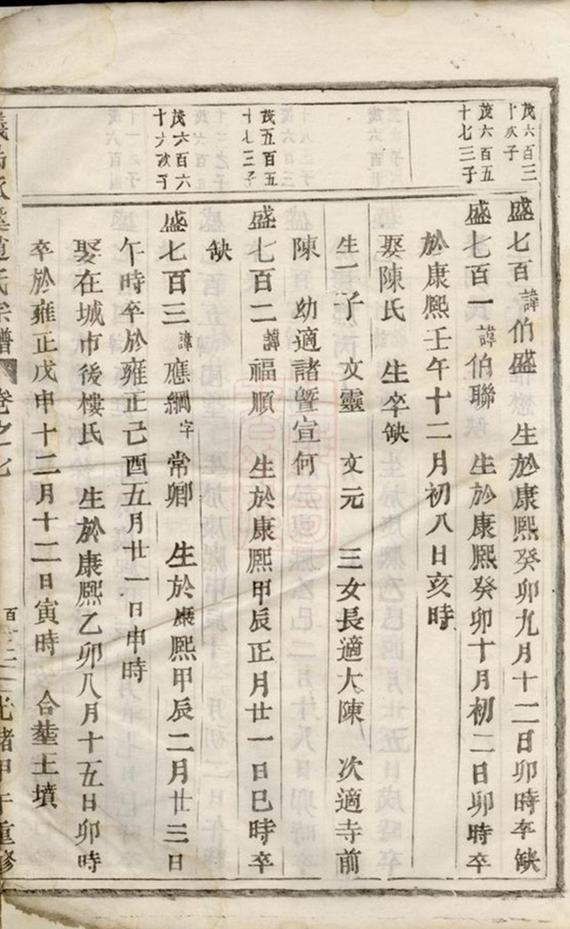 茂六百三
十次子
茂六百五
十七三子
茂五百五
十七三子
茂六百六
十六次子
盛七百諱伯盛 生於康熙癸卯九月十二日卯時卒缺
盛七百一諱伯聯 生於康熙癸卯十月初二日卯時卒
於康熙壬午十二月初八日亥時
娶陳氏 生卒缺
生二子 文靈 文元 三女長適大陳 次適寺前
陳 幼適諸暨宣何
盛七百二諱福順 生於康熙甲辰正月廿一日巳時卒
缺
盛七百三諱應綱字常卿 生於康熙甲辰二月廿三日
午時卒於雍正己酉五月廿一日申時
娶在城市後樓氏 生於康熙乙卯八月十五日卯時
卒於雍正戊申十二月十二日寅時 合塟土墳
氏宗譜 卷之七 光緒甲午重修